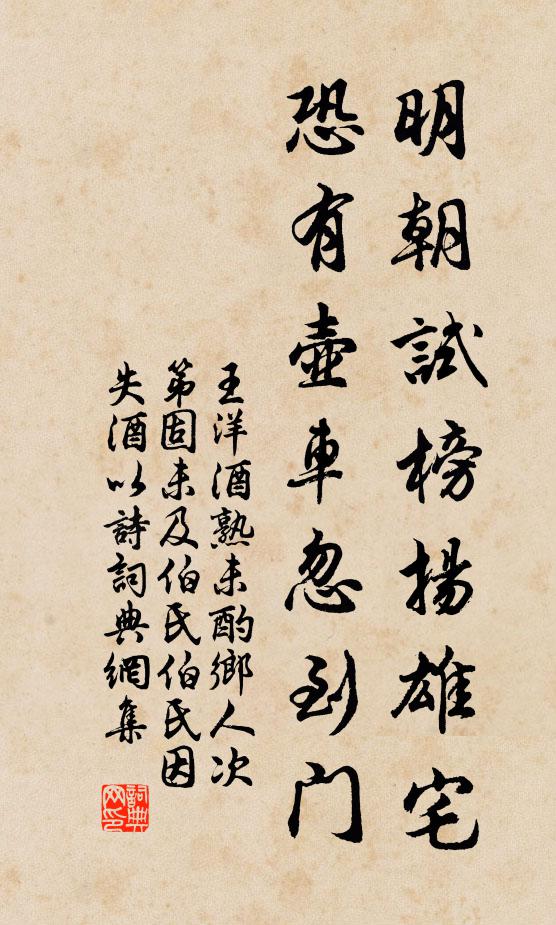 明朝試榜揚雄宅
恐有壺車忽到門
王洋酒熟未酌鄉人次
第固未及伯氏伯氏因
失酒以詩詞典網集
詞典
网印